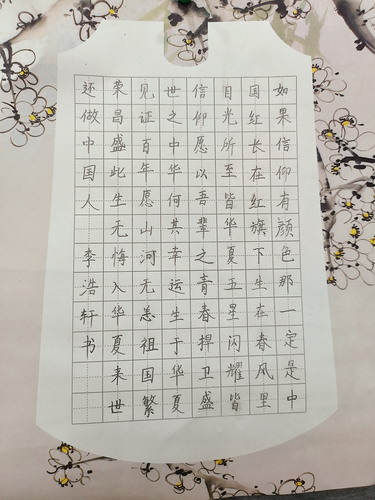 如果信仰有颜色那一定是中
国红长在红旗下生在春风里
目光所至皆华夏五星闪耀皆
信仰愿以吾辈之青春捍卫盛
世之中华何其幸运生于华夏
见证百年愿山河无恙祖国繁
荣昌盛此生无悔入华夏来世
还做中国人 李浩轩书